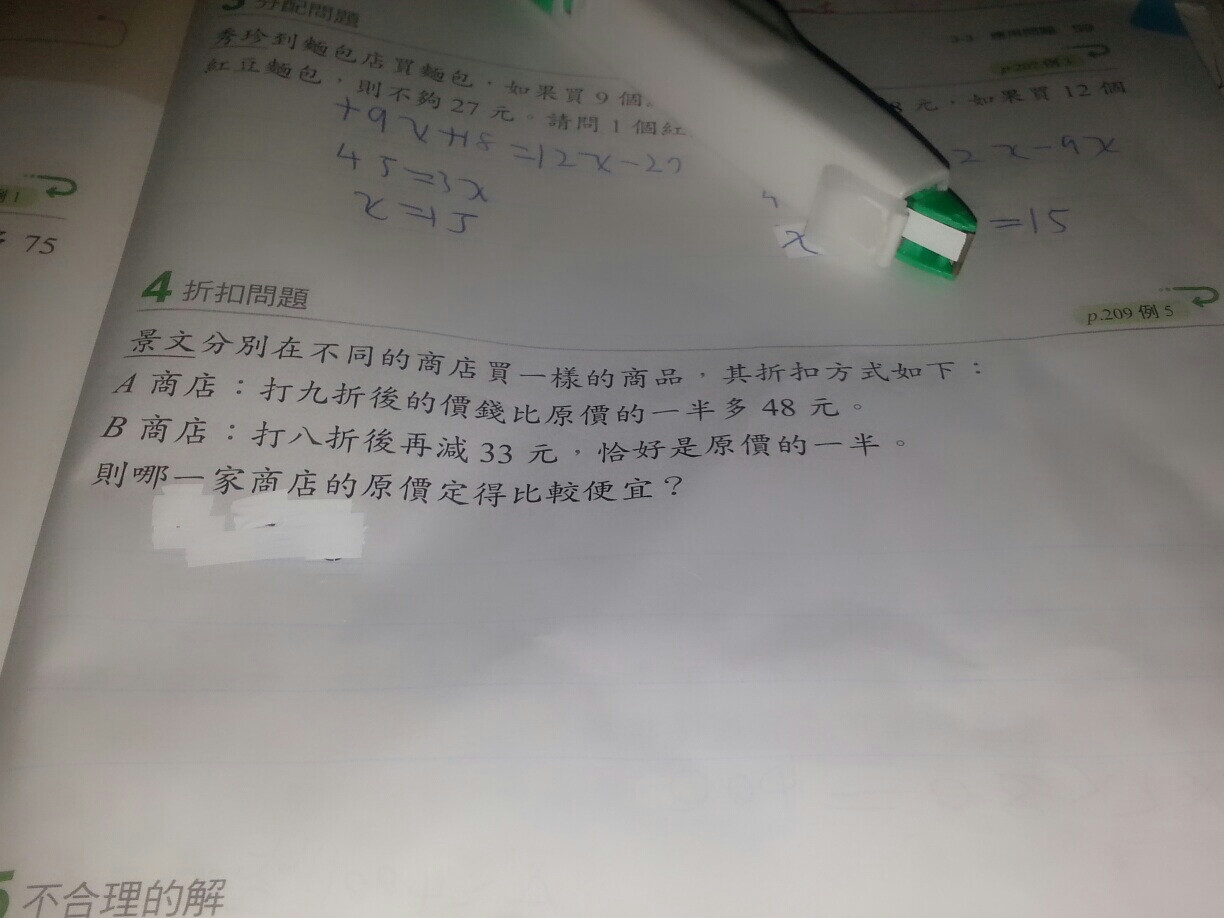 分配問題
3-3 應用問題 59
秀珍到麵包店買麵包,如果買9個 8元,如果買12個
紅豆麵包,則不夠27元。請問1個紅
+9x+18=12x-27
2x-9x
45=3x
x=15
x =15
例1
75
4 折扣問題
p.209 例5
景文分別在不同的商店買一樣的商品,其折扣方式如下:
A 商店:打九折後的價錢比原價的一半多48元。
B 商店:打八折後再減33元,恰好是原價的一半。
則哪一家商店的原價定得比較便宜?
5 不合理的解